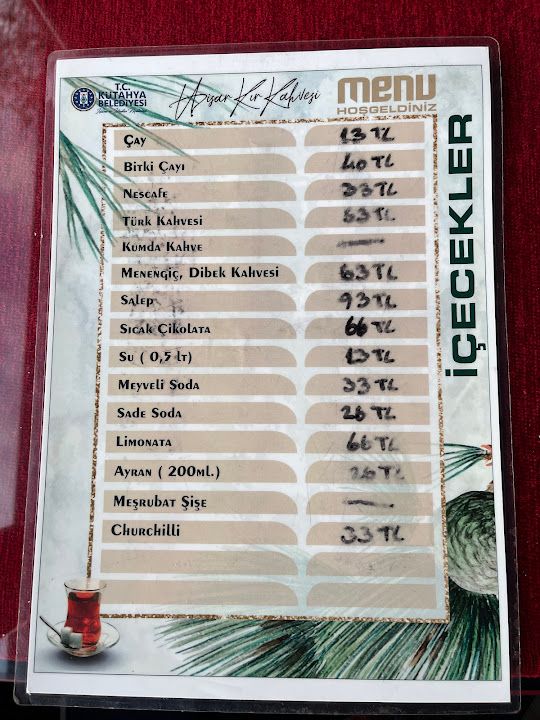 T.C.
KUTAHYA
BELEDİYESİ
Hisar Kır Kahvesi
menu
HOŞGELDİNİZ
İÇECEKLER
Çay 13 TL
Bitki Çayı 40 TL
Nescafe 33 TL
Türk Kahvesi 53 TL
Kumda Kahve —
Menengiç, Dibek Kahvesi 63 TL
Salep 93 TL
Sıcak Çikolata 66 TL
Su ( 0,5 lt) 13 TL
Meyveli Soda 33 TL
Sade Soda 26 TL
Limonata 66 TL
Ayran ( 200ml.) 26 TL
Meşrubat Şişe —
Churchilli 33 TL